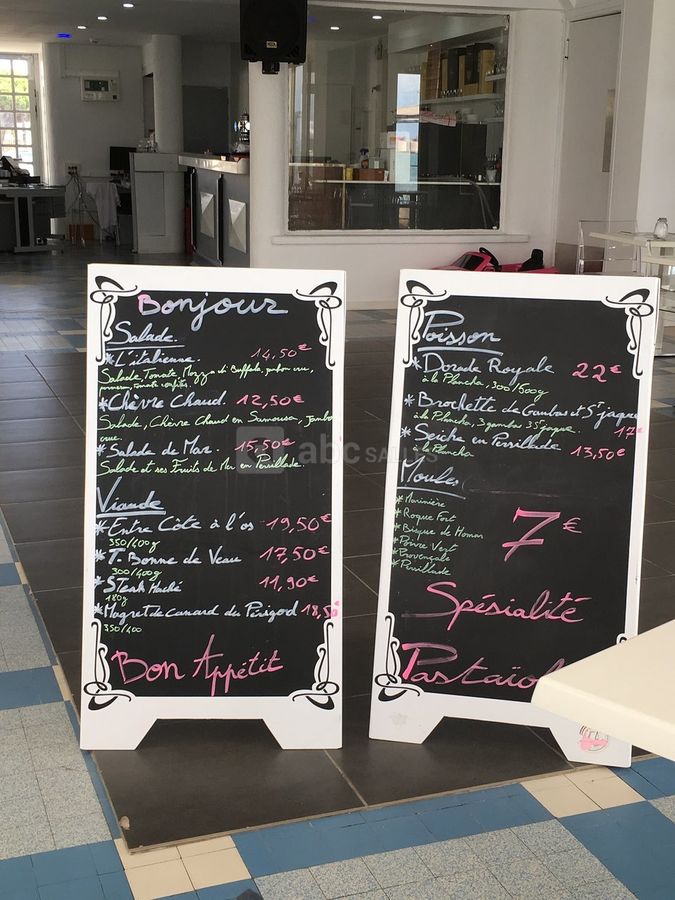 Bonjour
Salade.
*L'italienne. 14,50€
Salade, Tomate, Mozza di Buffala, jambon cru,
*Chèvre Chaud. 12,50€
Salade, Chèvre Chaud en Samousa, Jambon
crue.
*Salade de Mer. 15,50€
Salade et ses Fruits de Mer en Persillade.
Viande
*Entre Côte à l'os 19,50€
350/400g
*T. Bonne de Veau 17,50€
300/400g
*Steak Haché 11,90€
180g
*Magret de canard du Périgod 18,50
350/400
Bon Appétit
Poisson
*Dorade Royale 22€
à la Plancha, 300/500g
*Brochette de Gambas et St jaque 17€
à la Plancha, 3 gambas 3 St jaque.
*Seiche en Persillade 13,50€
à la Plancha
Moules
*Marinière
*Roque Fort
*Bisque de Homar
*Poivre Vert
*Provençale
*Persillade
7€
Spésialité
Pastaïol
abc SALLES